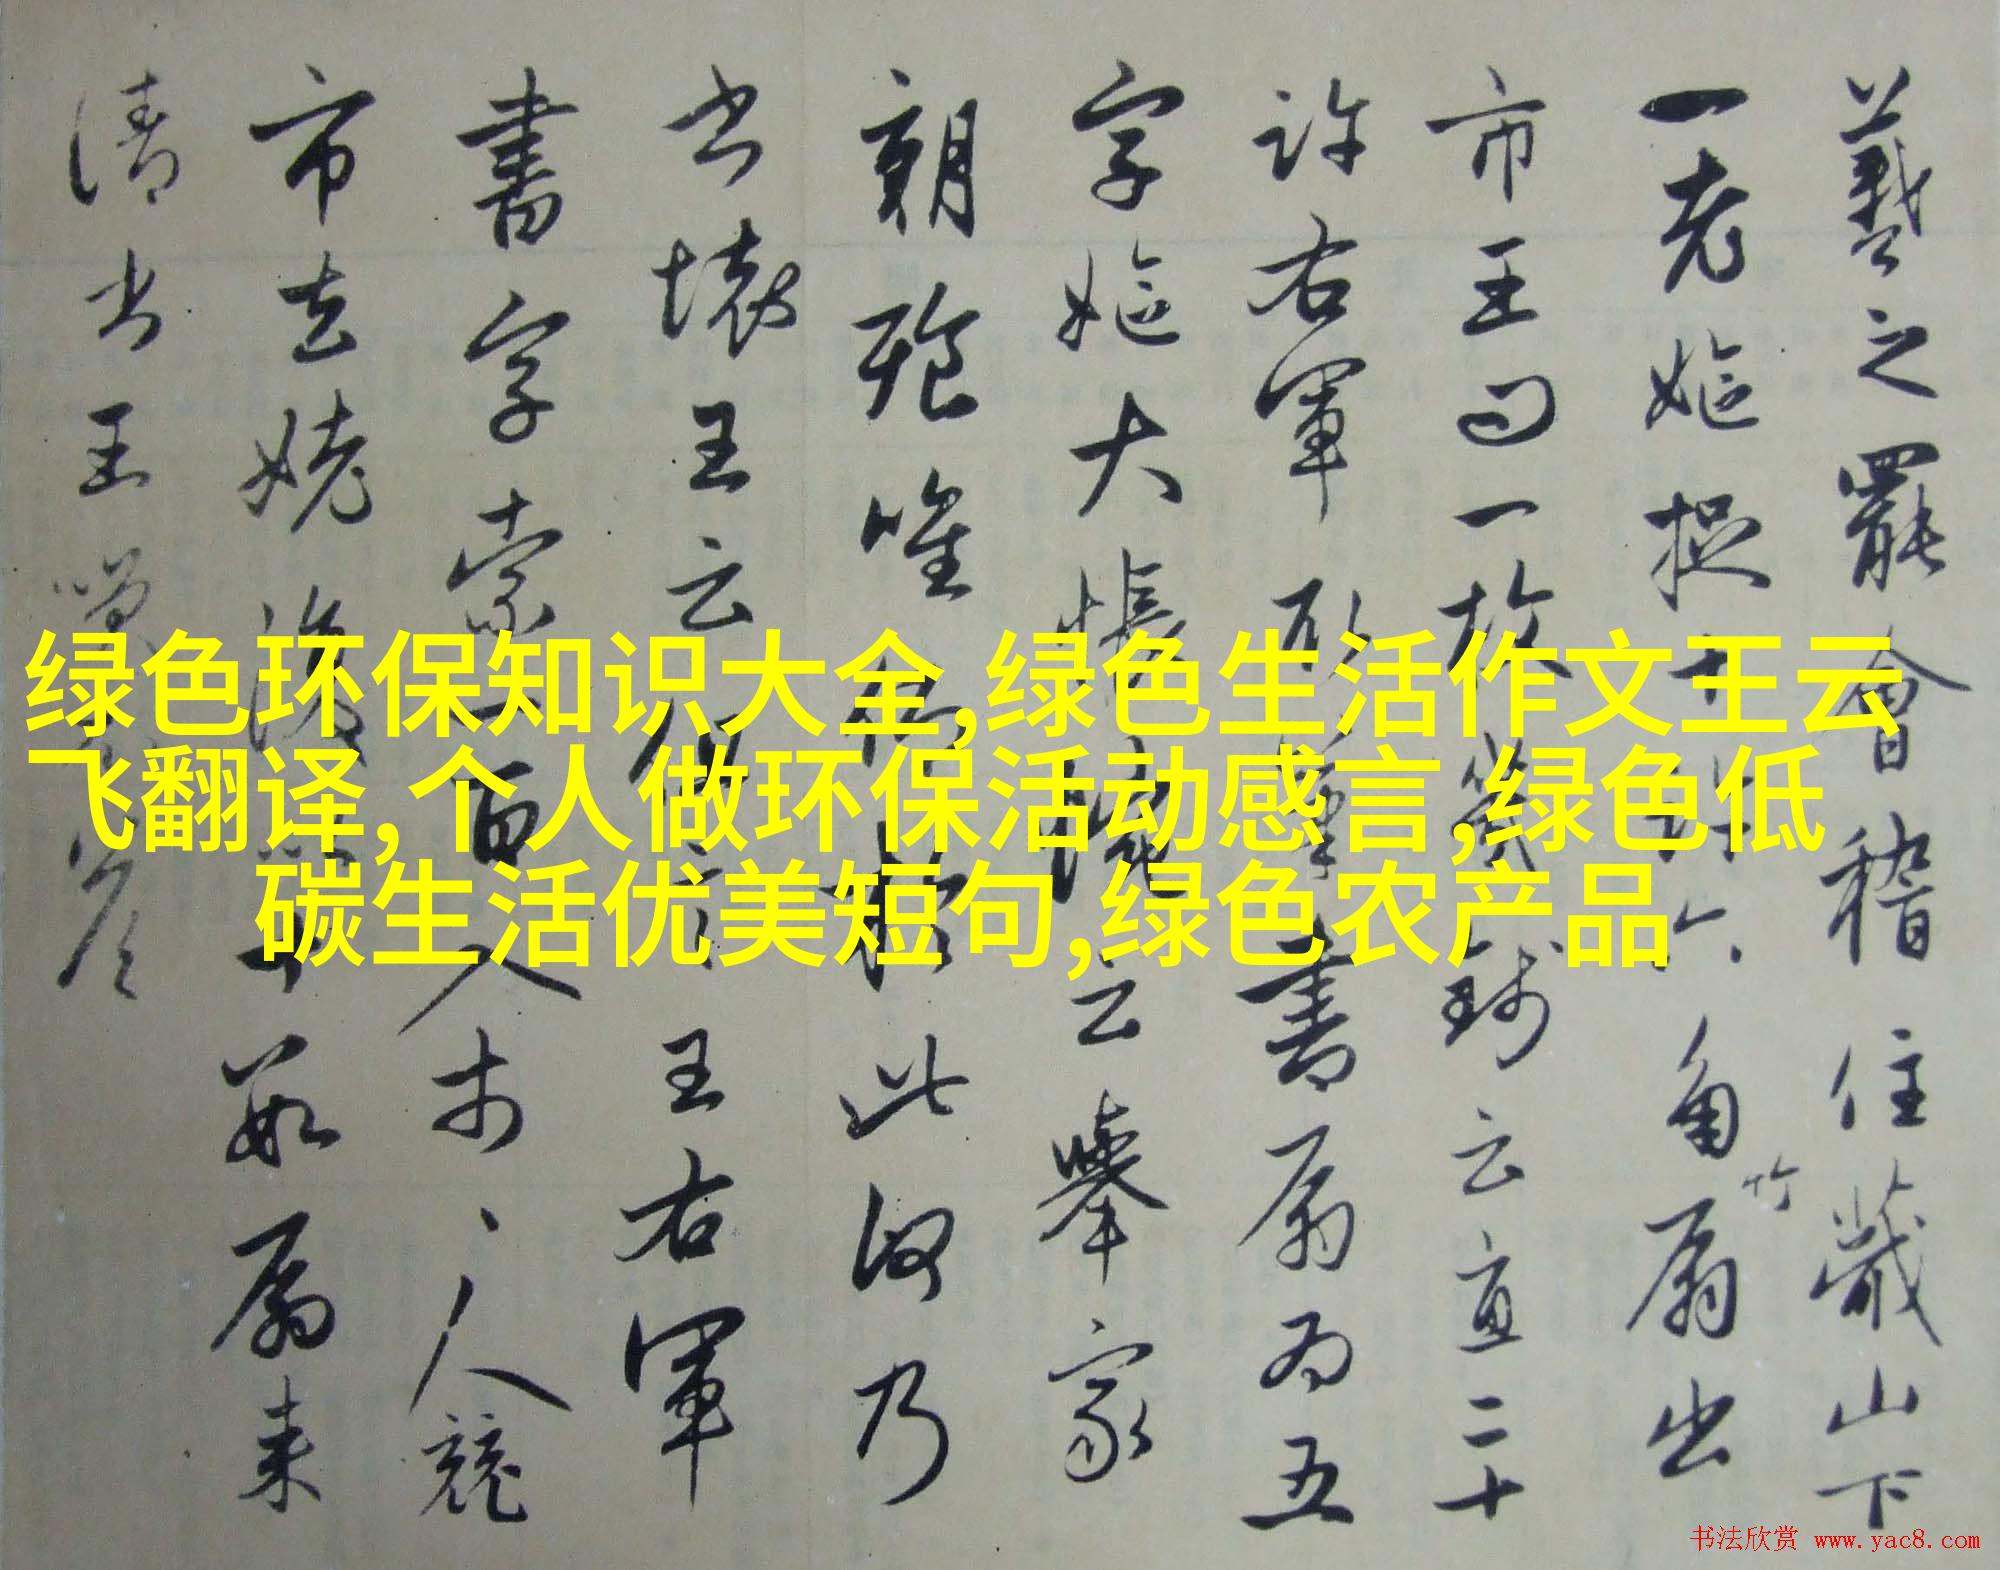 羲之罷會稽住蕺山下
一老嫗捉十許六角竹扇出
市王問一枚幾錢云直二十
許右軍取筆書扇為五
字嫗大悵惋云舉家
朝飱唯仰於此何乃
書壞王云但言王右軍
書字索一百入市、人競
市去姥復以十數扇來
請書王笑不答
绿色环保知识大全,绿色生活作文王云
飞翻译,个人做环保活动感言,绿色低
碳生活优美短句,绿色农产品
书法欣赏 www.yac8.com